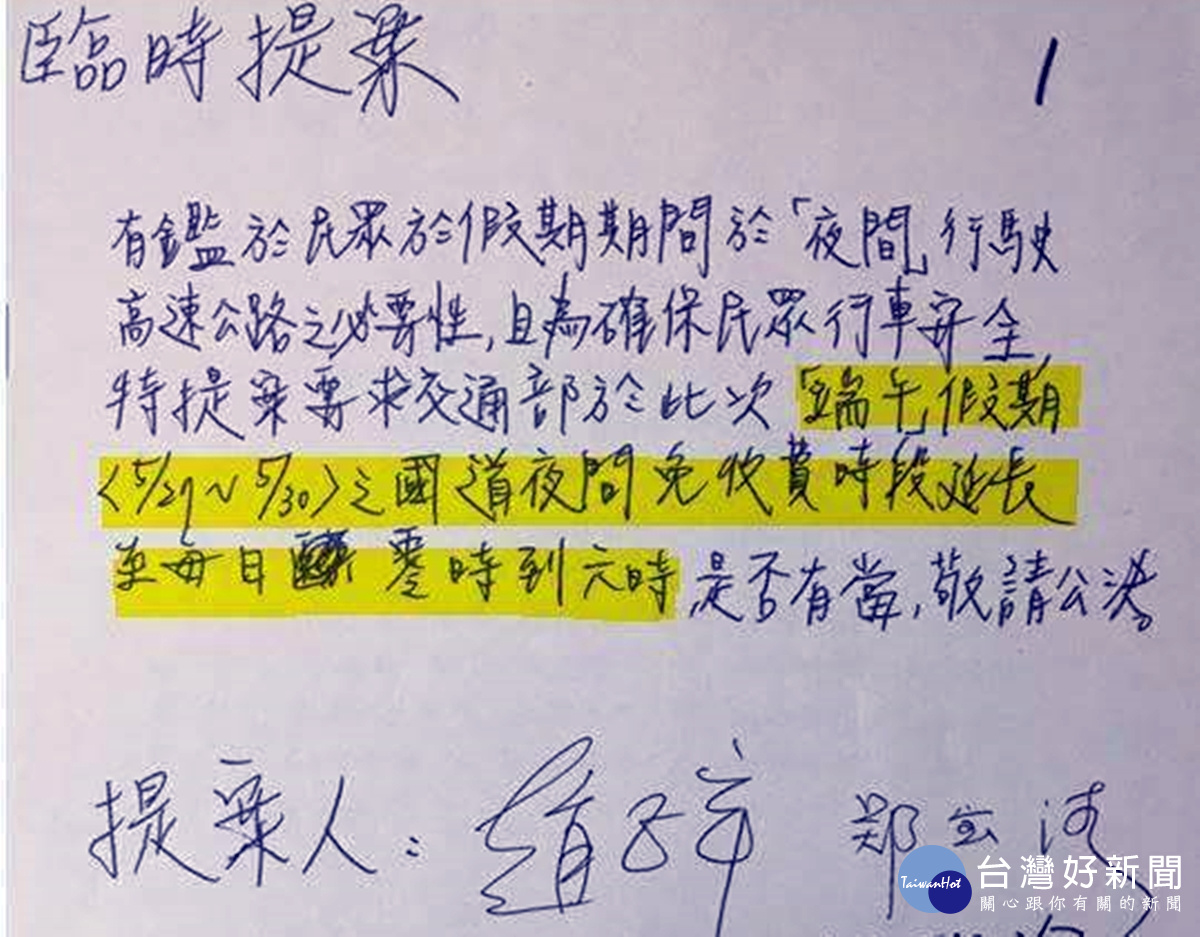 臨時提案
1
有鑑於民眾於假期期間於「夜間」行駛
高速公路之必要性,且為確保民眾行車安全,
特提案要求交通部於此次「端午」假期
〈5/27~5/30〉之國道夜間免收費時段延長
至每日 零時到六時,是否有當,敬請公決。
提案人: 鄭
TaiwanHot
台灣好新聞
關心跟你有關的新聞